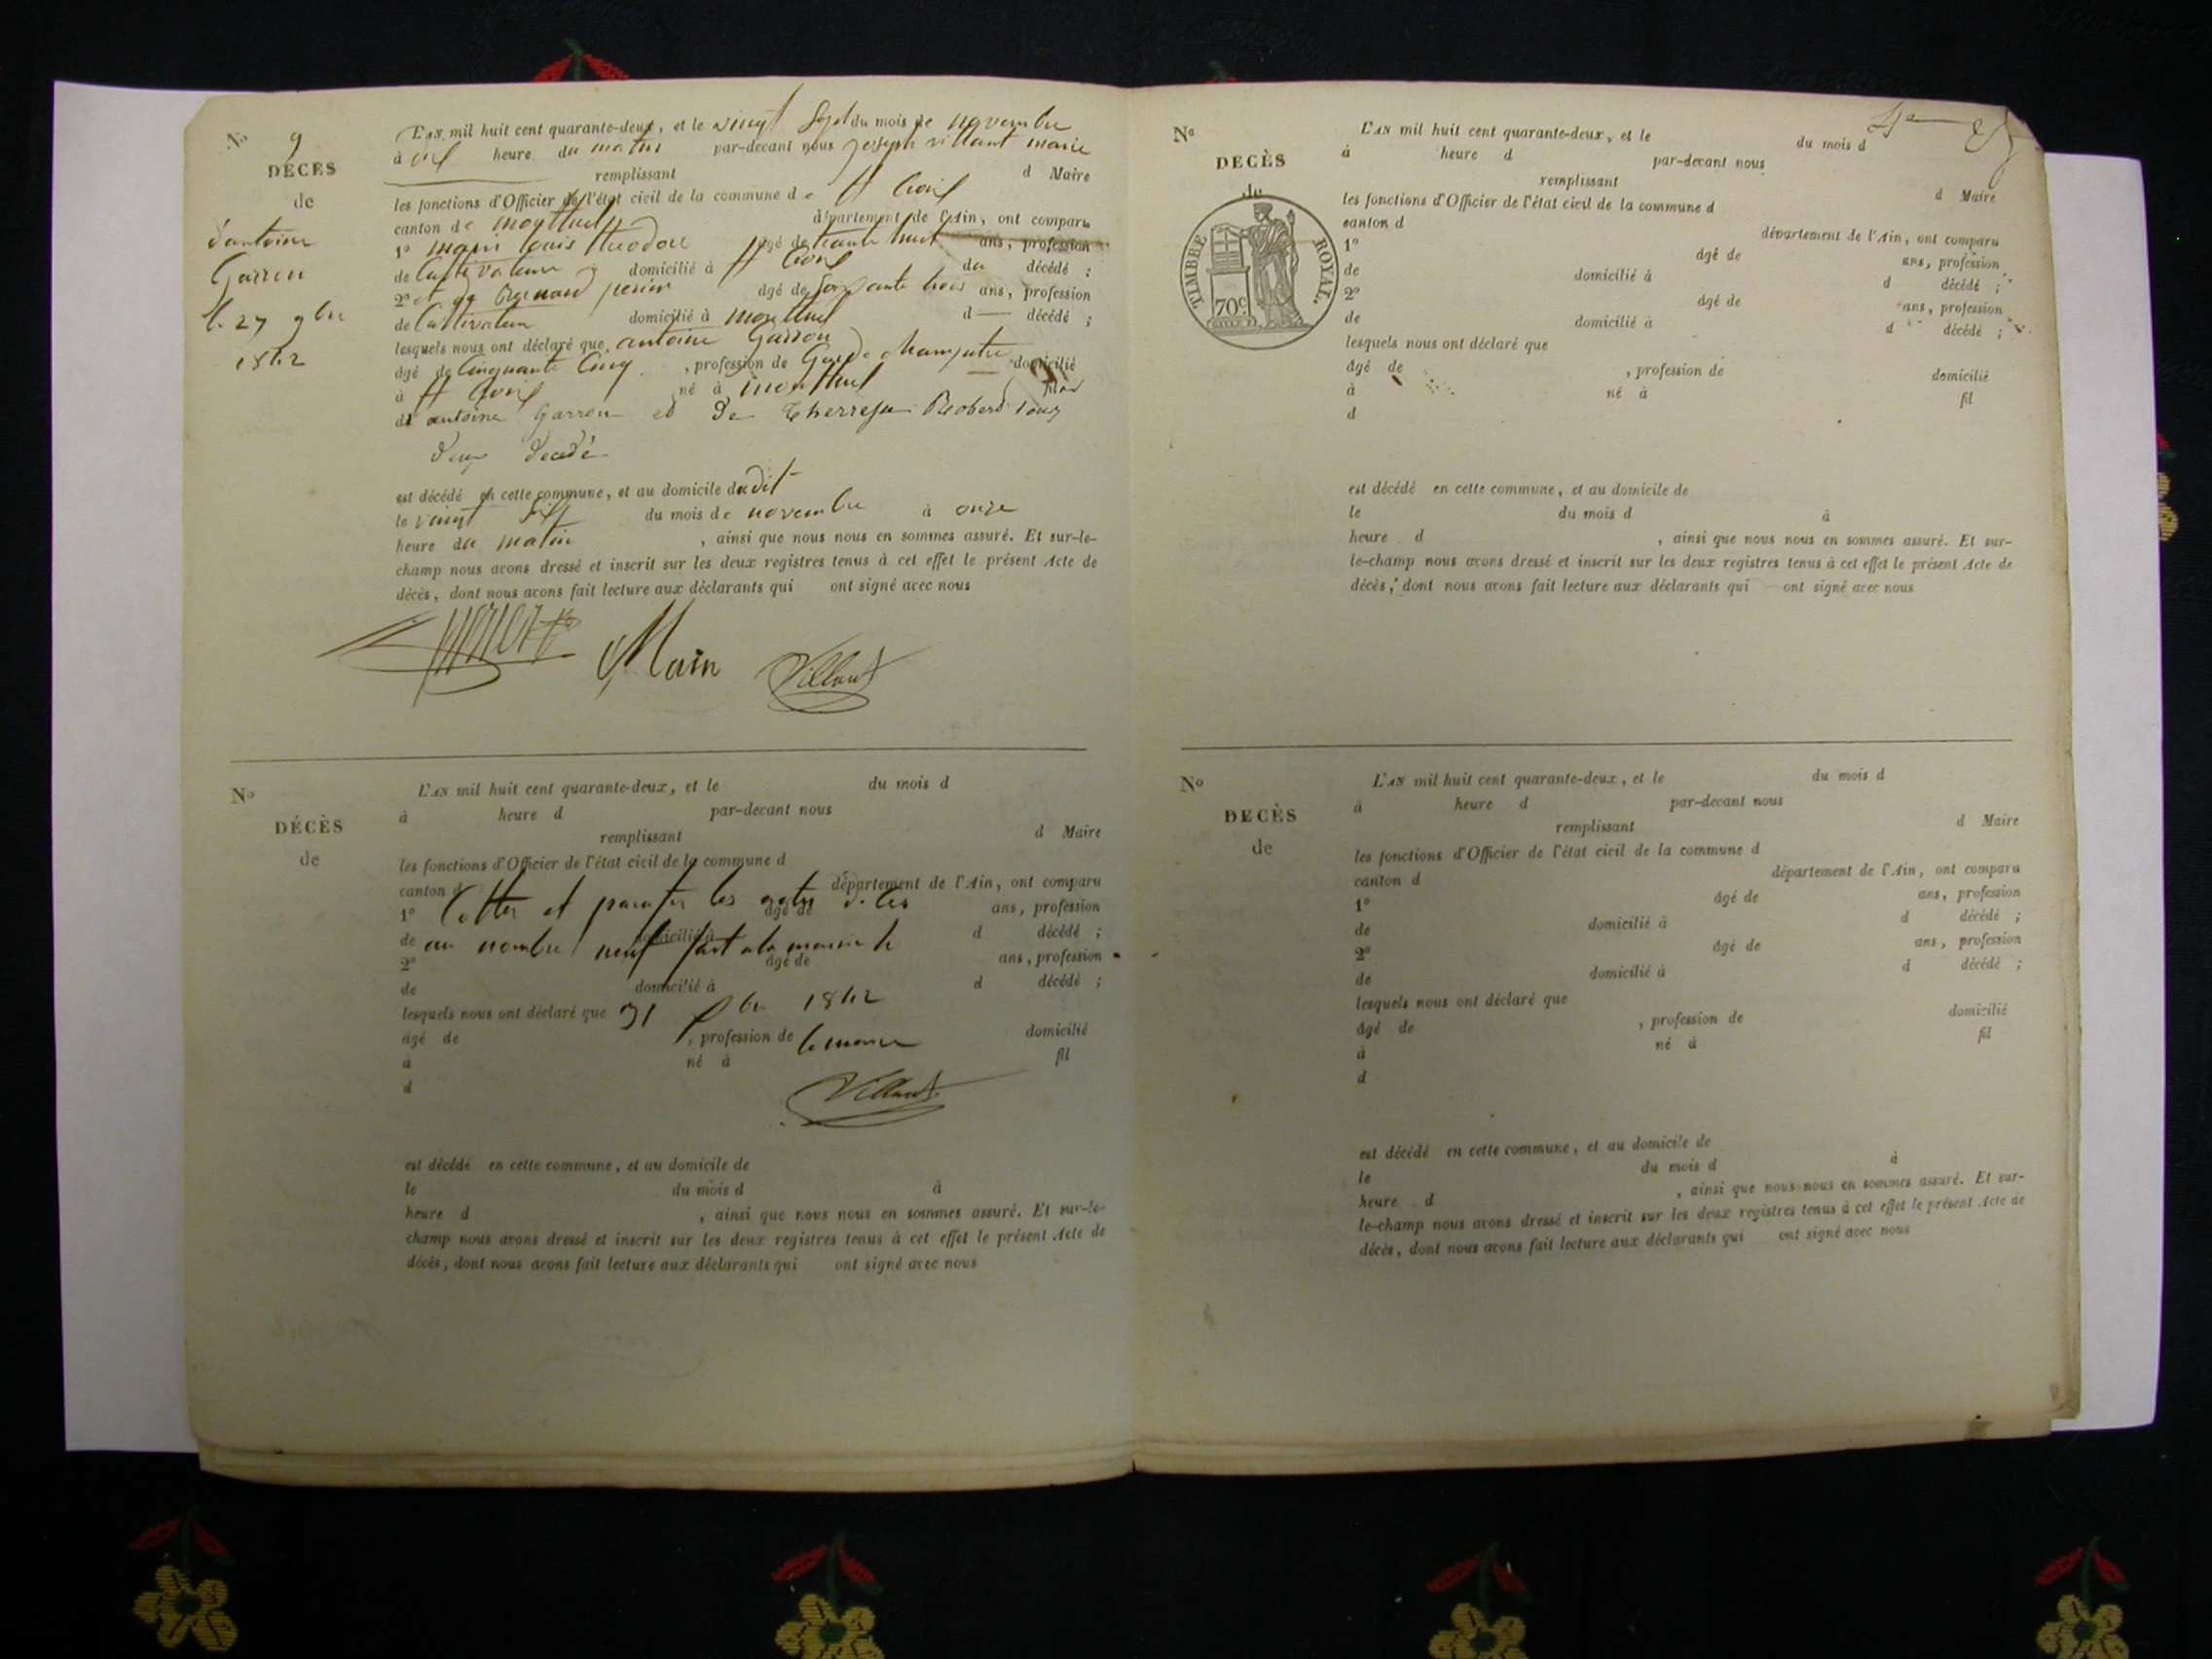 No 9
DÉCÈS
de
d'antoine
Garron
le 27 9bre
1842
L'AN mil huit cent quarante-deux, et le vingt Sept du mois de novembre
à heure du matin par-devant nous joseph villaut maire
remplissant d Maire
les fonctions d'Officier de l'état civil de la commune de St Croix
canton de montluel département de l'Ain, ont comparu
1o main louis theodore âgé de trante huit ans, profession
de Cultivateur domicilié à St Croix du décédé ;
2o perier âgé de soixante trois ans, profession
de Cultivateur domicilié à montluel d — décédé ;
lesquels nous ont déclaré que antoine Garron
âgé de Cinquante Cinq , profession de Garde champetre domicilié
à St Croix né à montluel fil
de antoine Garron et De Therresse Robert tous
deux décédé
est décédé en cette commune, et au domicile dudit
le vaingt Sept du mois de novembre à onze
heure du matin , ainsi que nous nous en sommes assuré. Et sur-le-
champ nous avons dressé et inscrit sur les deux registres tenus à cet effet le présent Acte de
décès, dont nous avons fait lecture aux déclarants qui ont signé avec nous
Main Villaut
No
DÉCÈS
de
L'AN mil huit cent quarante-deux, et le du mois d
à heure d par-devant nous
remplissant d Maire
les fonctions d'Officier de l'état civil de la commune d
canton d département de l'Ain, ont comparu
Cotter et parafer les actes
1o âgé de ans, profession
de domicilié à d décédé ;
au nombre neuf fait a la mairie le
2o âgé de ans, profession
de domicilié à d décédé ;
lesquels nous ont déclaré que 31 bre 1842
âgé de , profession de le maire domicilié
à né à fil
d
Villaut
est décédé en cette commune, et au domicile de
le du mois d à
heure d , ainsi que nous nous en sommes assuré. Et sur-le-
champ nous avons dressé et inscrit sur les deux registres tenus à cet effet le présent Acte de
décès, dont nous avons fait lecture aux déclarants qui ont signé avec nous
No
DECÈS
de
TIMBRE ROYAL.
70c
L'AN mil huit cent quarante-deux, et le du mois d
à heure d par-devant nous
remplissant d Maire
les fonctions d'Officier de l'état civil de la commune d
canton d département de l'Ain, ont comparu
1o âgé de ans, profession
de domicilié à d décédé ;
2o âgé de ans, profession
de domicilié à d décédé ;
lesquels nous ont déclaré que
âgé de , profession de domicilié
à né à fil
d
est décédé en cette commune, et au domicile de
le du mois d à
heure d , ainsi que nous nous en sommes assuré. Et sur-
le-champ nous avons dressé et inscrit sur les deux registres tenus à cet effet le présent Acte de
décès, dont nous avons fait lecture aux déclarants qui ont signé avec nous
No
DECÈS
de
L'AN mil huit cent quarante-deux, et le du mois d
à heure d par-devant nous
remplissant d Maire
les fonctions d'Officier de l'état civil de la commune d
canton d département de l'Ain, ont comparu
1o âgé de ans, profession
de domicilié à d décédé ;
2o âgé de ans, profession
de domicilié à d décédé ;
lesquels nous ont déclaré que
âgé de , profession de domicilié
à né à fil
d
est décédé en cette commune, et au domicile de
le du mois d à
heure d , ainsi que nous nous en sommes assuré. Et sur-
le-champ nous avons dressé et inscrit sur les deux registres tenus à cet effet le présent Acte de
décès, dont nous avons fait lecture aux déclarants qui ont signé avec nous